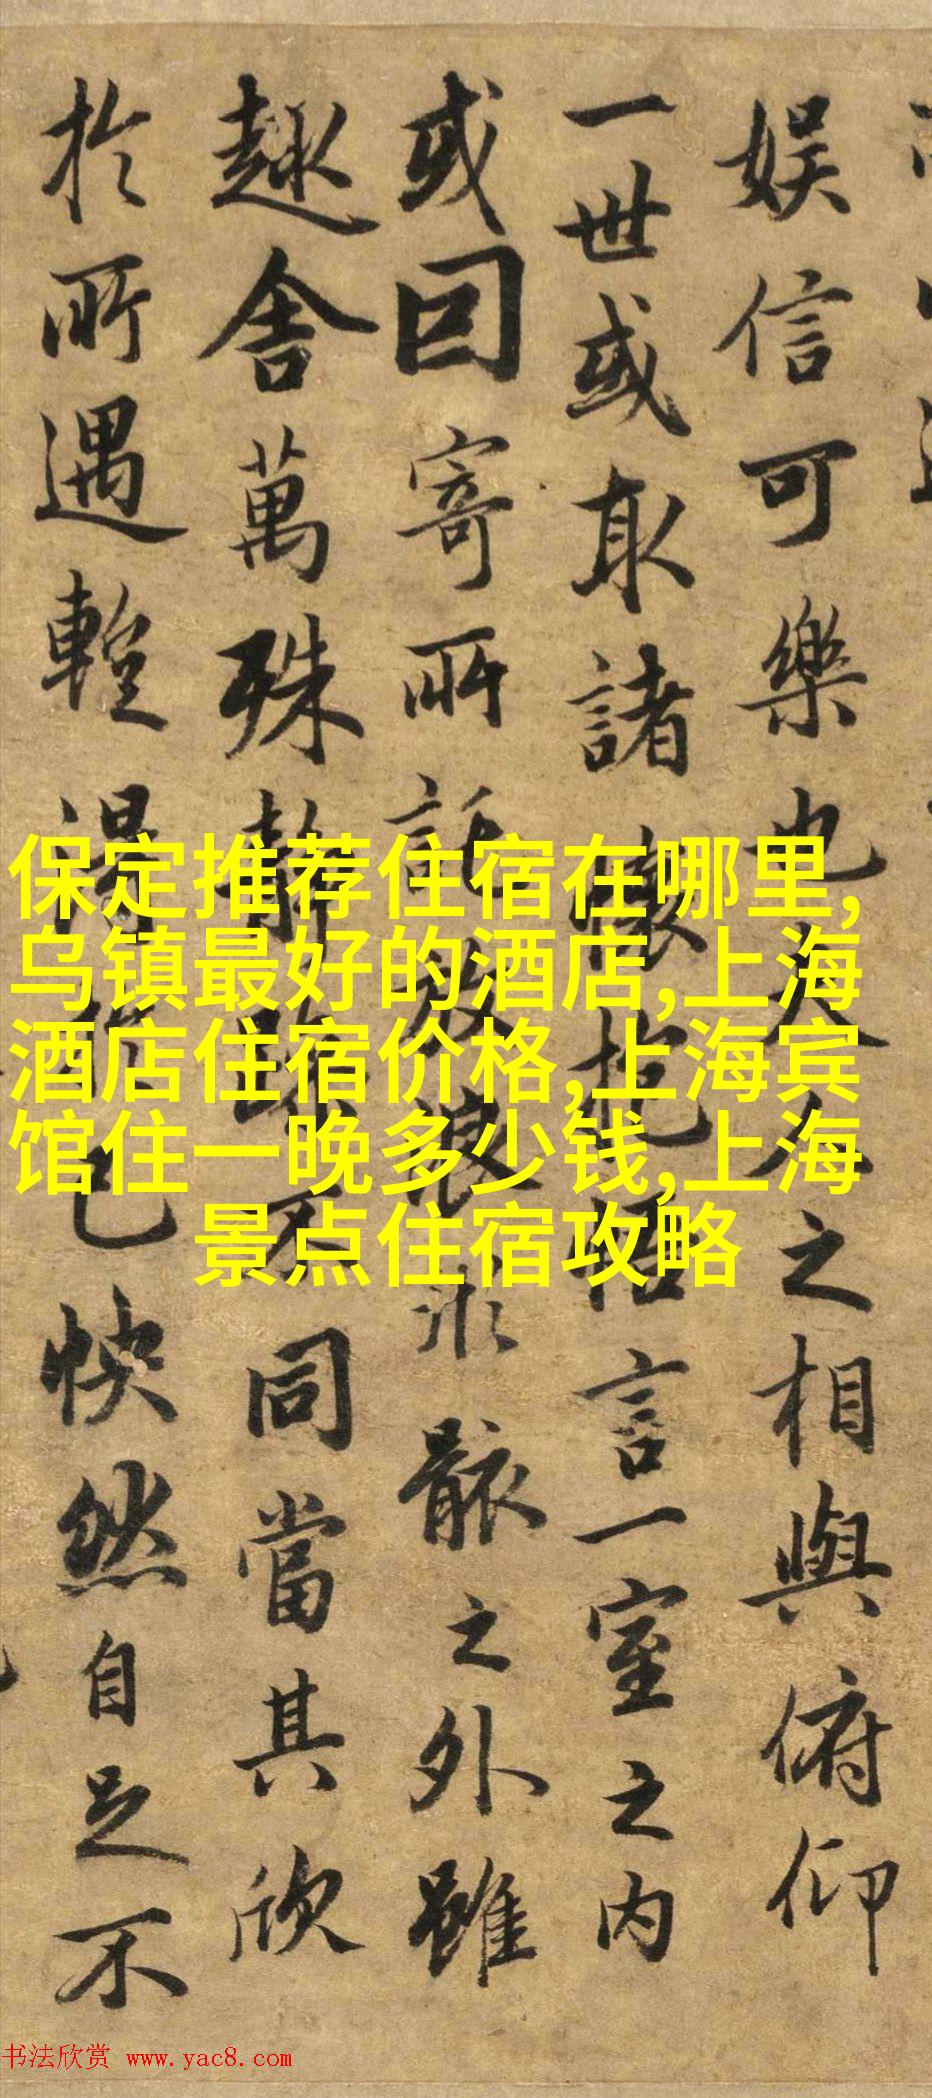 娱信可樂也夫人之相與俯仰
一世或取諸懷抱悟言一室之内
或因寄所託放浪形骸之外雖
趣舍萬殊静躁不同當其欣
於所遇蹔得於己怏然自足不
保定推荐住宿在哪里,
乌镇最好的酒店,上海
酒店住宿价格,上海宾
馆住一晚多少钱,上海
景点住宿攻略
书法欣赏 www.yac8.com